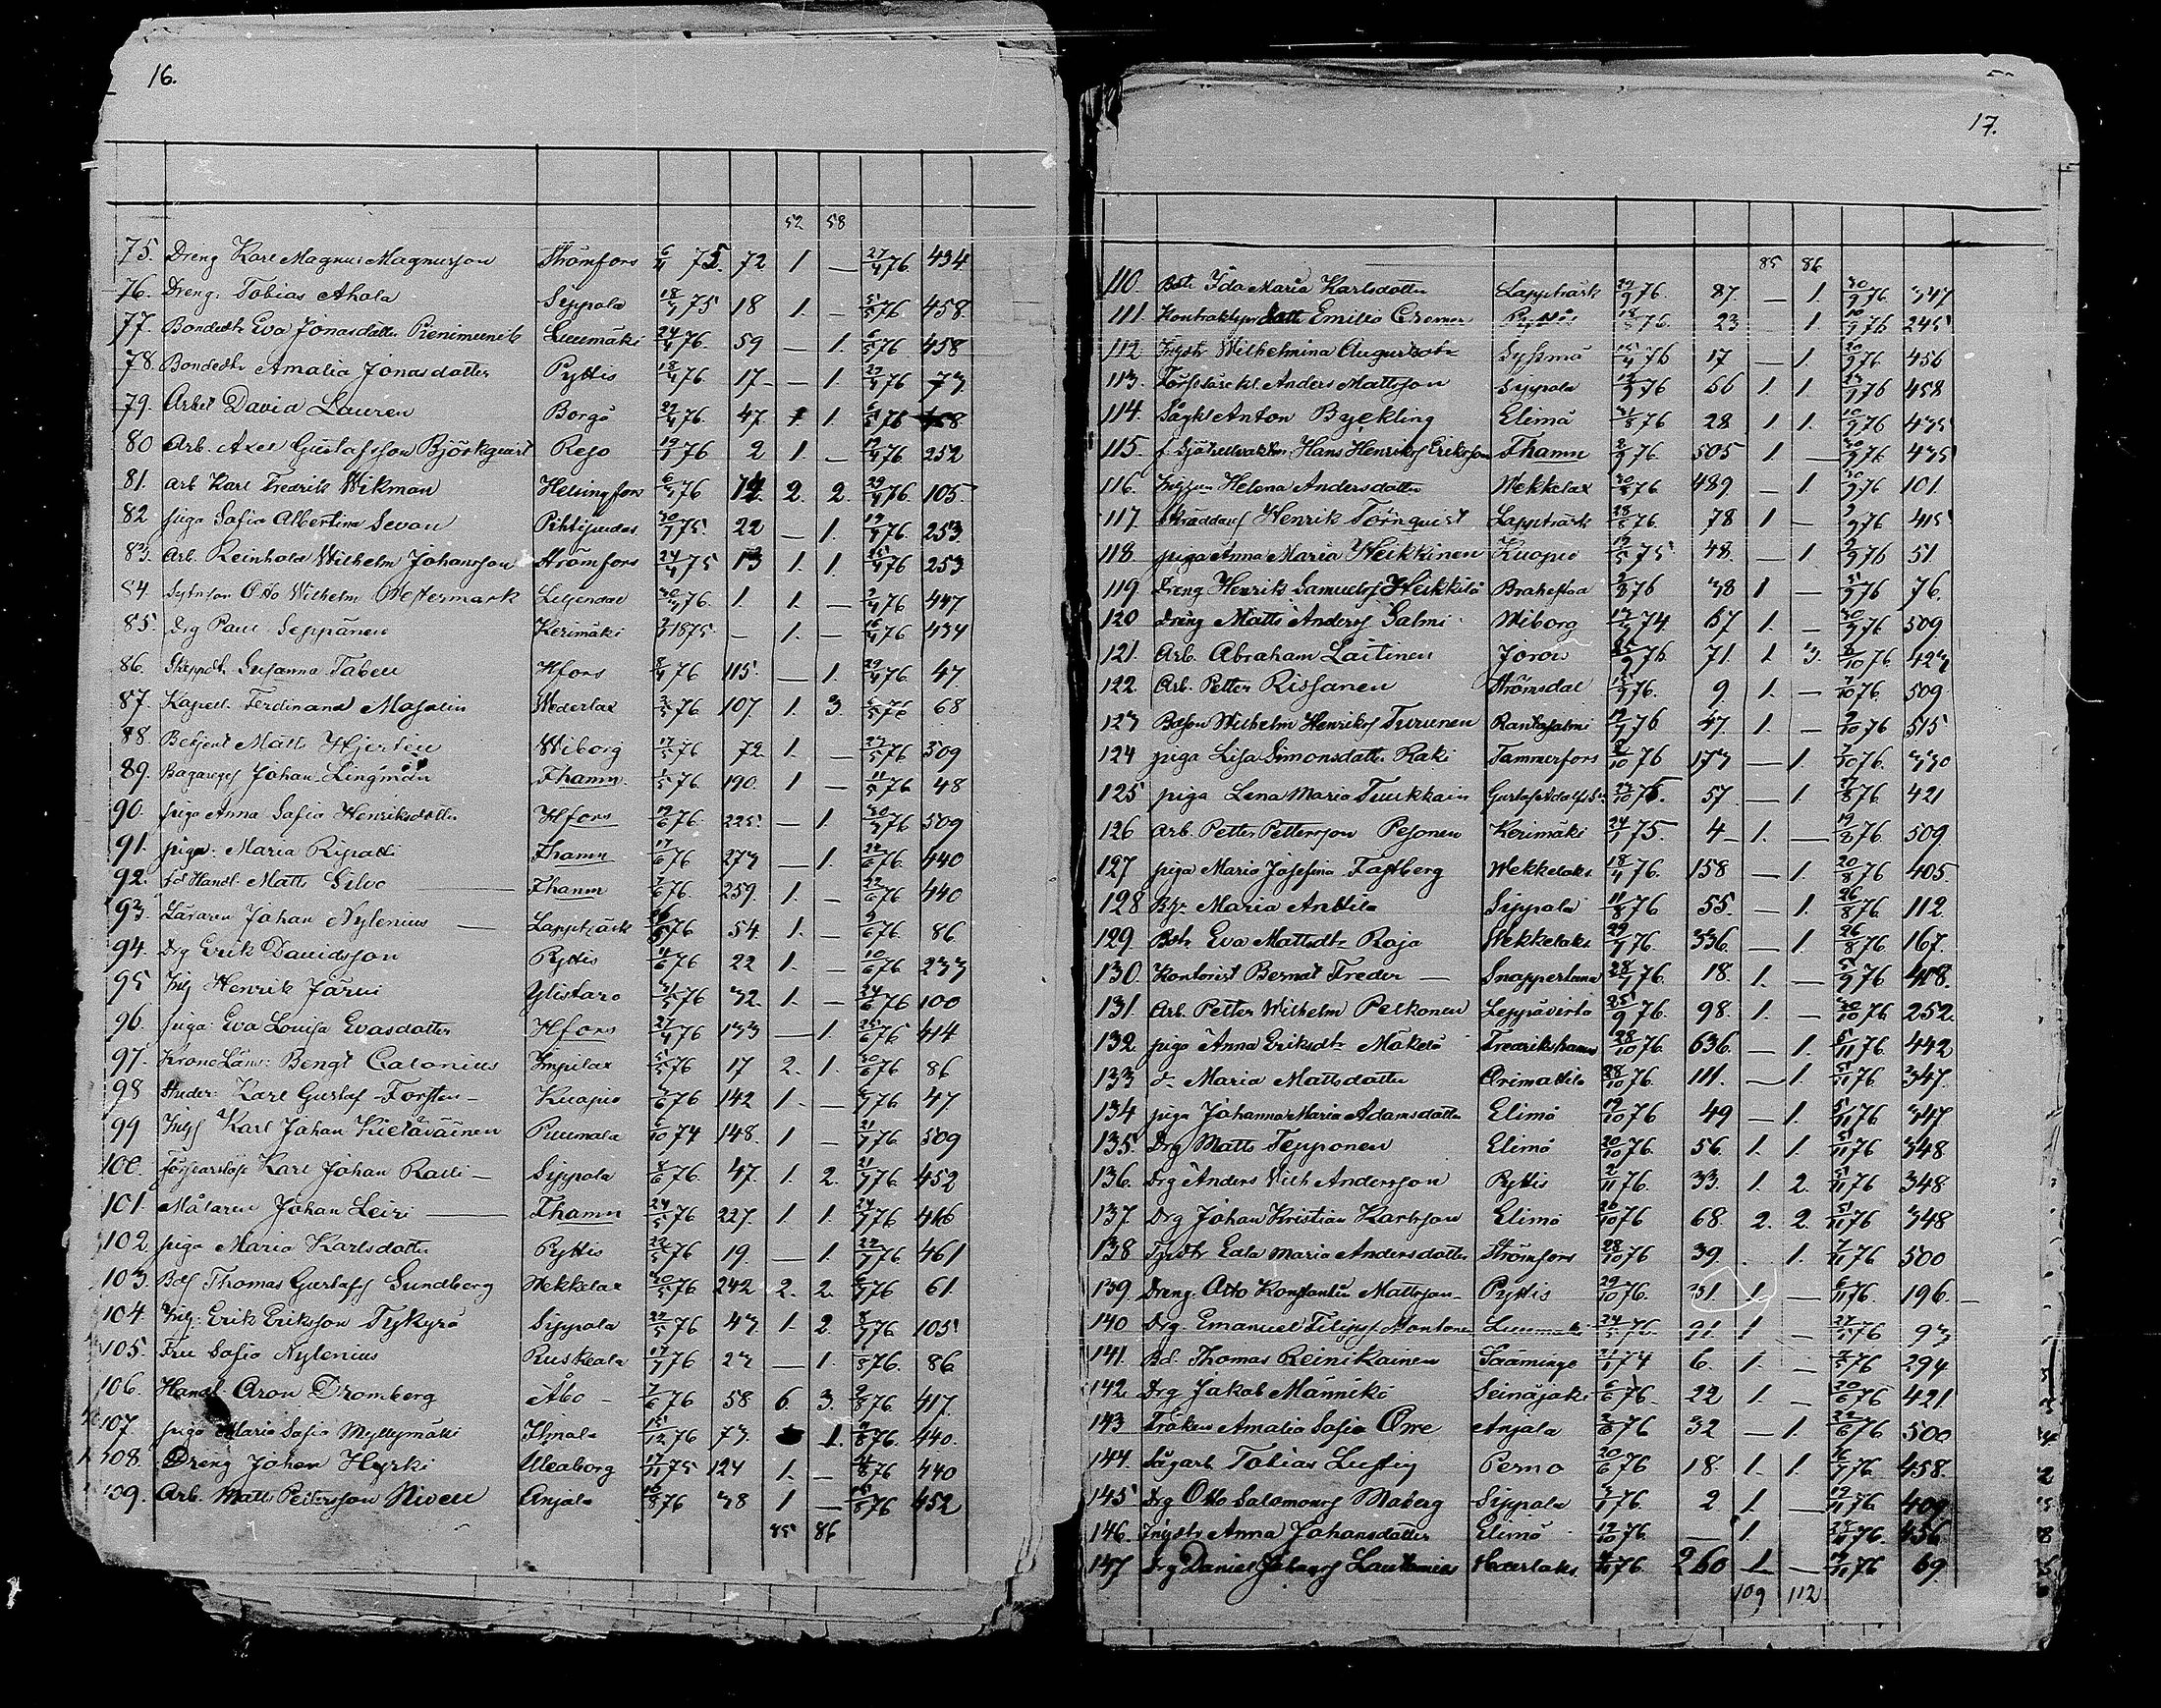 16.
52 58
75. Dreng Karl Magnus Magnusson Strömfors 6/4 75. 72 1 — 27/4 76. 434
76. Dreng. Tobias Ahola Sippola 18/4 75 18 1. — 5/5 76. 458.
77. Bondedtr Eva Jonasdotter Pienimunck Luumäki 24/4 76. 59 — 1. 6/5 76. 458
78. Bondedtr Amalia Jonasdotter Pyttis 18/4 76. 17 — 1. 27/4 76 73
79. Arbet David Lauren Borgå 29/4 76. 47. 1. 1. 5/5 76
80 Arb. Axel Gustafsson Björkqvist Rejo 19/4 76 2 1 — 19/4 76. 252
81. arb Karl Fredrik Wikman Helsingfors 6/4 76 2. 2. 29/4 76. 105
82 piga Sofia Albertina Sevon Pihtipudas 75. 22 — 1. 19/4 76. 253.
83. Arb. Reinhold Wilhelm Johansson Strömfors 24/4 75 13 1. 1. 25/4 76 253
84 Otto Wilhelm Westermark Liljendal 76. 1. 1. — 76 447
85. Drg Paul Seppänen Kerimäki 1875. — 1. — 16/4 76 434
86. Susanna Tabell Hfors 8/4 76 115. — 1. 29/4 76. 47
87. Kapell. Ferdinand Masalin Wederlax 76 107. 1. 3. 76 68
88. Betjent Matts Hjerten Wiborg 17/5 76 72. 1. — 23/5 76 509
89. Bagaregs Johan Lingman Fhamn 1/5 76. 190. 1 — 11/5 76 48
90. piga Anna Sofia Henriksdotter Hfors 19/6 76. 225. — 1. 76 509
91. piga. Maria Ripatti Fhamn 17/6 76 273 — 1. 22/6 76. 440
92. fd Handl. Matts Silvo — Fhamn 76. 259. 1. — 22/6 76 440
93. Läraren Johan Nylenius — Lappträsk 76 54. 1. — 9/6 76. 86
94. Drg Erik Davidsson Pyttis 76 22 1. — 10/6 76. 233
95 Inhy Henrik Järvi Ylistaro 31/5 76 32. 1. — 24/6 76 100
96. piga. Eva Lovisa Evasdotter Hfors 27/4 76 133 — 1. 25/6 76 414
97. Krono Läns. Bengt Calonius Impilax 5/5 76 17 2. 1. 30/6 76 86
98 Studer. Karl Gustaf Forsten — Kuopio 76 142 1. — 76 47
99 Inhys Karl Johan Kietäväinen Puumala 6/10 74 148. 1 — 21/7 76 509
100. Karl Johan Ralli — Sippola 8/6 76. 47. 1. 2. 21/7 76. 452
101. Målaren Johan Leiri — Fhamn 24/5 76 227. 1. 1. 24/7 76 416
102. piga Maria Karlsdotter Pyttis 22/5 76 19. — 1. 22/7 76. 461
103. Bds Thomas Gustafs Sundberg Wekkelax 30/5 76 242 2. 2. 76 61.
104. Inhy: Erik Eriksson Tykyrä Sippola 22/5 76 43. 1. 2. 8/7 76. 105
105. Fru Sofia Nylenius Ruskeala 17/7 76 23 — 1. 8 76. 86
106. Handl. Aron Dromberg Åbo — 7/6 76 58 6. 3. 2/8 76. 417.
107. piga Maria Sofia Myllymäki Ilmola 15/12 76 73. 1. 8 76. 440.
108. Dreng Johan Hyrki Uleaborg 17/11 75 124 1. — 4/8 76 440
109. Arb. Matts Petersson Niveri Anjala 16/8 76 38 1 — 76 452
85 86
17.
85 86
110. Bdtr Ida Maria Karlsdotter Lappträsk 29/9 76. 87. — 1. 30/9 76. 347
111. dotter Emilia Cremer Pyttis 18/8 76. 23 — 1. 10/9 76 245
112 Inhystr Wilhelmina Augustsdtr Syssmä 15/4 76 17 — 1. 20/9 76. 456
113. Anders Mattsson Sippola 19/9 76 56 1. 1. 23/9 76 458
114. Sågkl Anton Byckling Elimä 31/8 76 28 1 1. 10/9 76 435
115. Hans Henriks Eriksson Fhamn 2/9 76. 505 1. — 30/9 76 435
116. Helena Andersdotter Wekkelax 30/8 76. 489. — 1. 30/9 76 101.
117. Skräddars Henrik Törnquist Lappträsk 28/8 76. 78 1 — 9 76 415
118 piga Anna Maria Heikkinen Kuopio 19/5 75. 48. — 1 9/9 76 51.
119. Dreng Henrik Samuels Heikkilä Brahestad 2/8 76 38 1 — 5/9 76 76.
120 Dreng Matts Anders Salmi Wiborg 74. 57 1. — 30/9 76. 509
121. Arb. Abraham Laitinen Jorois 9 76 71. 1. 3. 10 76. 423
122. Arb. Petter Rissanen Strömsdal 76. 9. 1. — 7/10 76. 509.
123 Bdson Wilhelm Henriks Turunen Rantasalmi 19/9 76 47. 1. — 9/10 76 515
124 piga Lisa Simonsdotter Raki Tammerfors 8/10 76 173 — 1. 7/10 76. 330
125 piga Lena Maria Tuukkain Gustaf Adolfs 10 76. 57 — 1. 17/8 76. 421
126 Arb. Petter Pettersson Pesonen Kerimäki 24/1 75. 4 1. — 19/8 76. 509
127 piga Maria Josefina Fastberg Wekkelaks 18/4 76. 158 — 1. 20/8 76 405.
128 Maria Anttila Sippola 11/8 76 55. — 1. 26/8 76 112.
129. Bdtr Eva Mattsdtr Raja Wekkelaks 29/7 76. 336. — 1. 26/8 76 167.
130. Kontorist Bernat Freder — Snappertuna 28/7 76. 18. 1. — 5/9 76 408.
131. Arb. Petter Wilhelm Pelkonen Leppävirta 25/9 76. 98. 1. — 30/10 76 252.
132. piga Anna Eriksdtr Mäkelä Fredrikshamn 28/10 76. 636. — 1. 5/11 76. 442
133 d. Maria Mattsdotter Orimattila 28/10 76. 111. — 1. 5/11 76. 347.
134 piga Johanna Maria Adamsdotter Elimä 19/10 76 49 — 1. 5/11 76 347
135. Drg Matts Tepponen Elimä 20/10 76. 56. 1. 1. 5/11 76 348
136. Drg Anders Wilh Andersson Pyttis 2/11 76. 33. 1. 2. 5/11 76 348
137. Drg Johan Kristian Karlsson Elimä 26/10 76 68. 2. 2. 5/11 76 348
138 Eala Maria Andersdotter Strömfors 28/10 76 39. 1. 7/11 76. 500
139 Dreng. Otto Konstantin Mattsson Pyttis 29/10 76. 31. 1. — 6/11 76. 196.
140 Drg. Emanuel Filips Montonen Luumäki 24/5 76. 91. 1 — 27/5 76 93
141. Bd. Thomas Reinikainen Sääminge 21/1 74 6. 1. — 76 294
142. Drg Jakob Männikö Seinäjoki 6/6 76. 22 1. — 20/6 76 421
143 Fröken Amalia Sofia Orre Anjala 2/6 76 32 — 1. 22/6 76 500
144. Sågarb Tobias Lustig Perno 20/6 76 18. 1. 1. 76. 458.
145 Drg Otto Salomons Moberg Sippola 76. 2 1. — 19/11 76. 409
146. Inhystr Anna Johansdotter Elimä 19/10 76. — 1. 76. 456
147 Drg Daniel Johans Lautamies 76. 260 1 — 19/11 76 69.
109 112